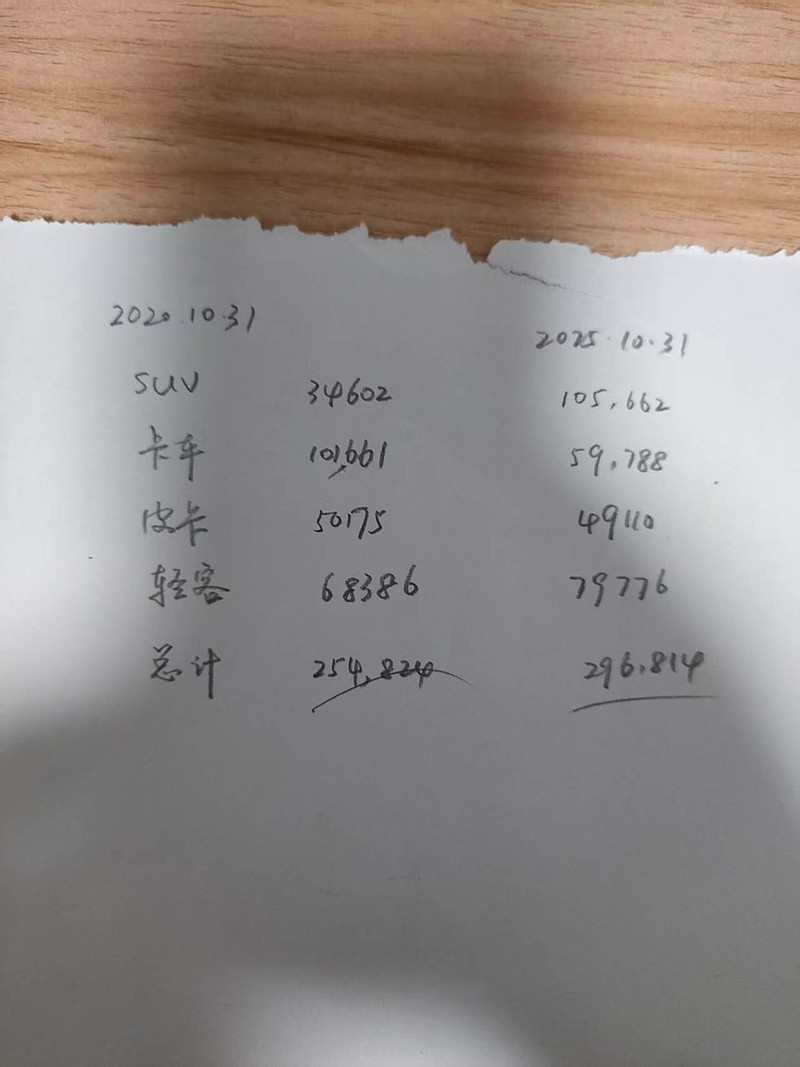 2020.10.31 2025.10.31
SUV 34602 105,662
卡车 101,661 59,788
皮卡 50175 49110
轻客 68386 79776
总计 254,824 296,814